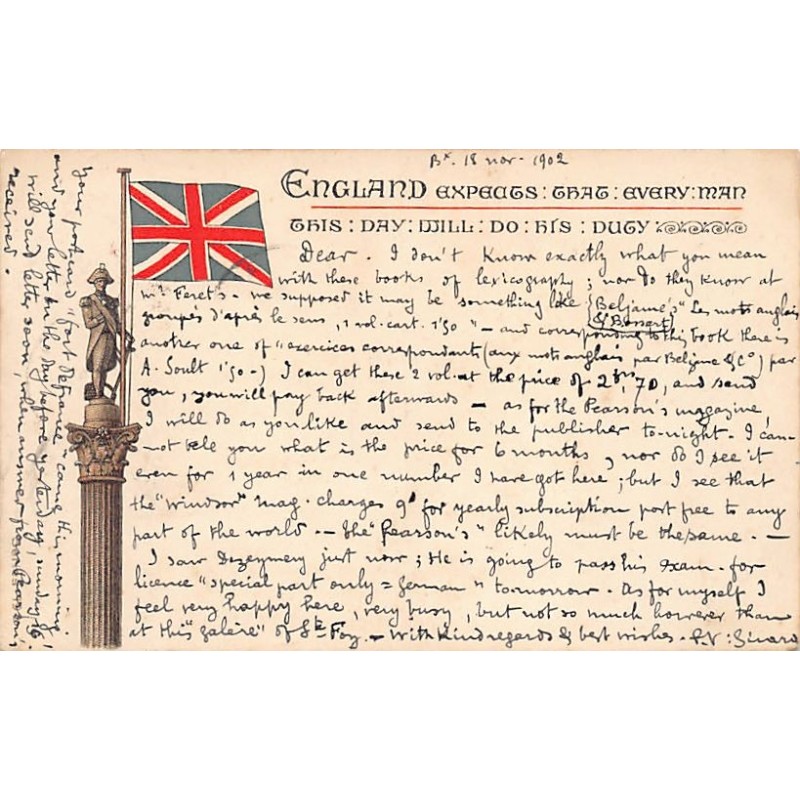 Bx. 18 nov- 1902
ENGLAND EXPECTS : THAT : EVERY : MAN
THIS : DAY : WILL : DO : HIS : DUTY
Dear . I don't know exactly what you mean
with these books of lexicography ; nor do they know at
Mr Feret's - we supposed it may be something like (Beljame's " Les mots anglais
& Bossert)
groupés d'après le sens, 1 vol. cart. 1'50 " - and corresponding to this book there is
another one of "exercices correspondants (aux mots anglais par Beljame & Co) par
A. Soult 1'50 -) I can get these 2 vol. at the price of 2frs,70, and send
you, you will pay back afterwards - as for the Pearson's magazine
I will do as you like and send to the publisher to-night. I can-
-not tele you what is the price for 6 months, nor do I see it
even for 1 year in one number I have got here ; but I see that
the "Windsor" Mag. charges 9s for yearly subscription port free to any
part of the world. - the "Pearson's" likely must be the same. -
I saw Dezeymery just now ; He is going to pass his exam. for
licence "special part only = German " to-morrow. As for myself I
feel very happy here, very busy, but not so much however than
at this "galère" of Ste Foy. - With kind regards & best wishes. Sicard
your postcard "fort Défiance" came this morning.
and your letter on the day before yesterday, sunday 16.
Will send letter soon, when answer from Pearson's
received .